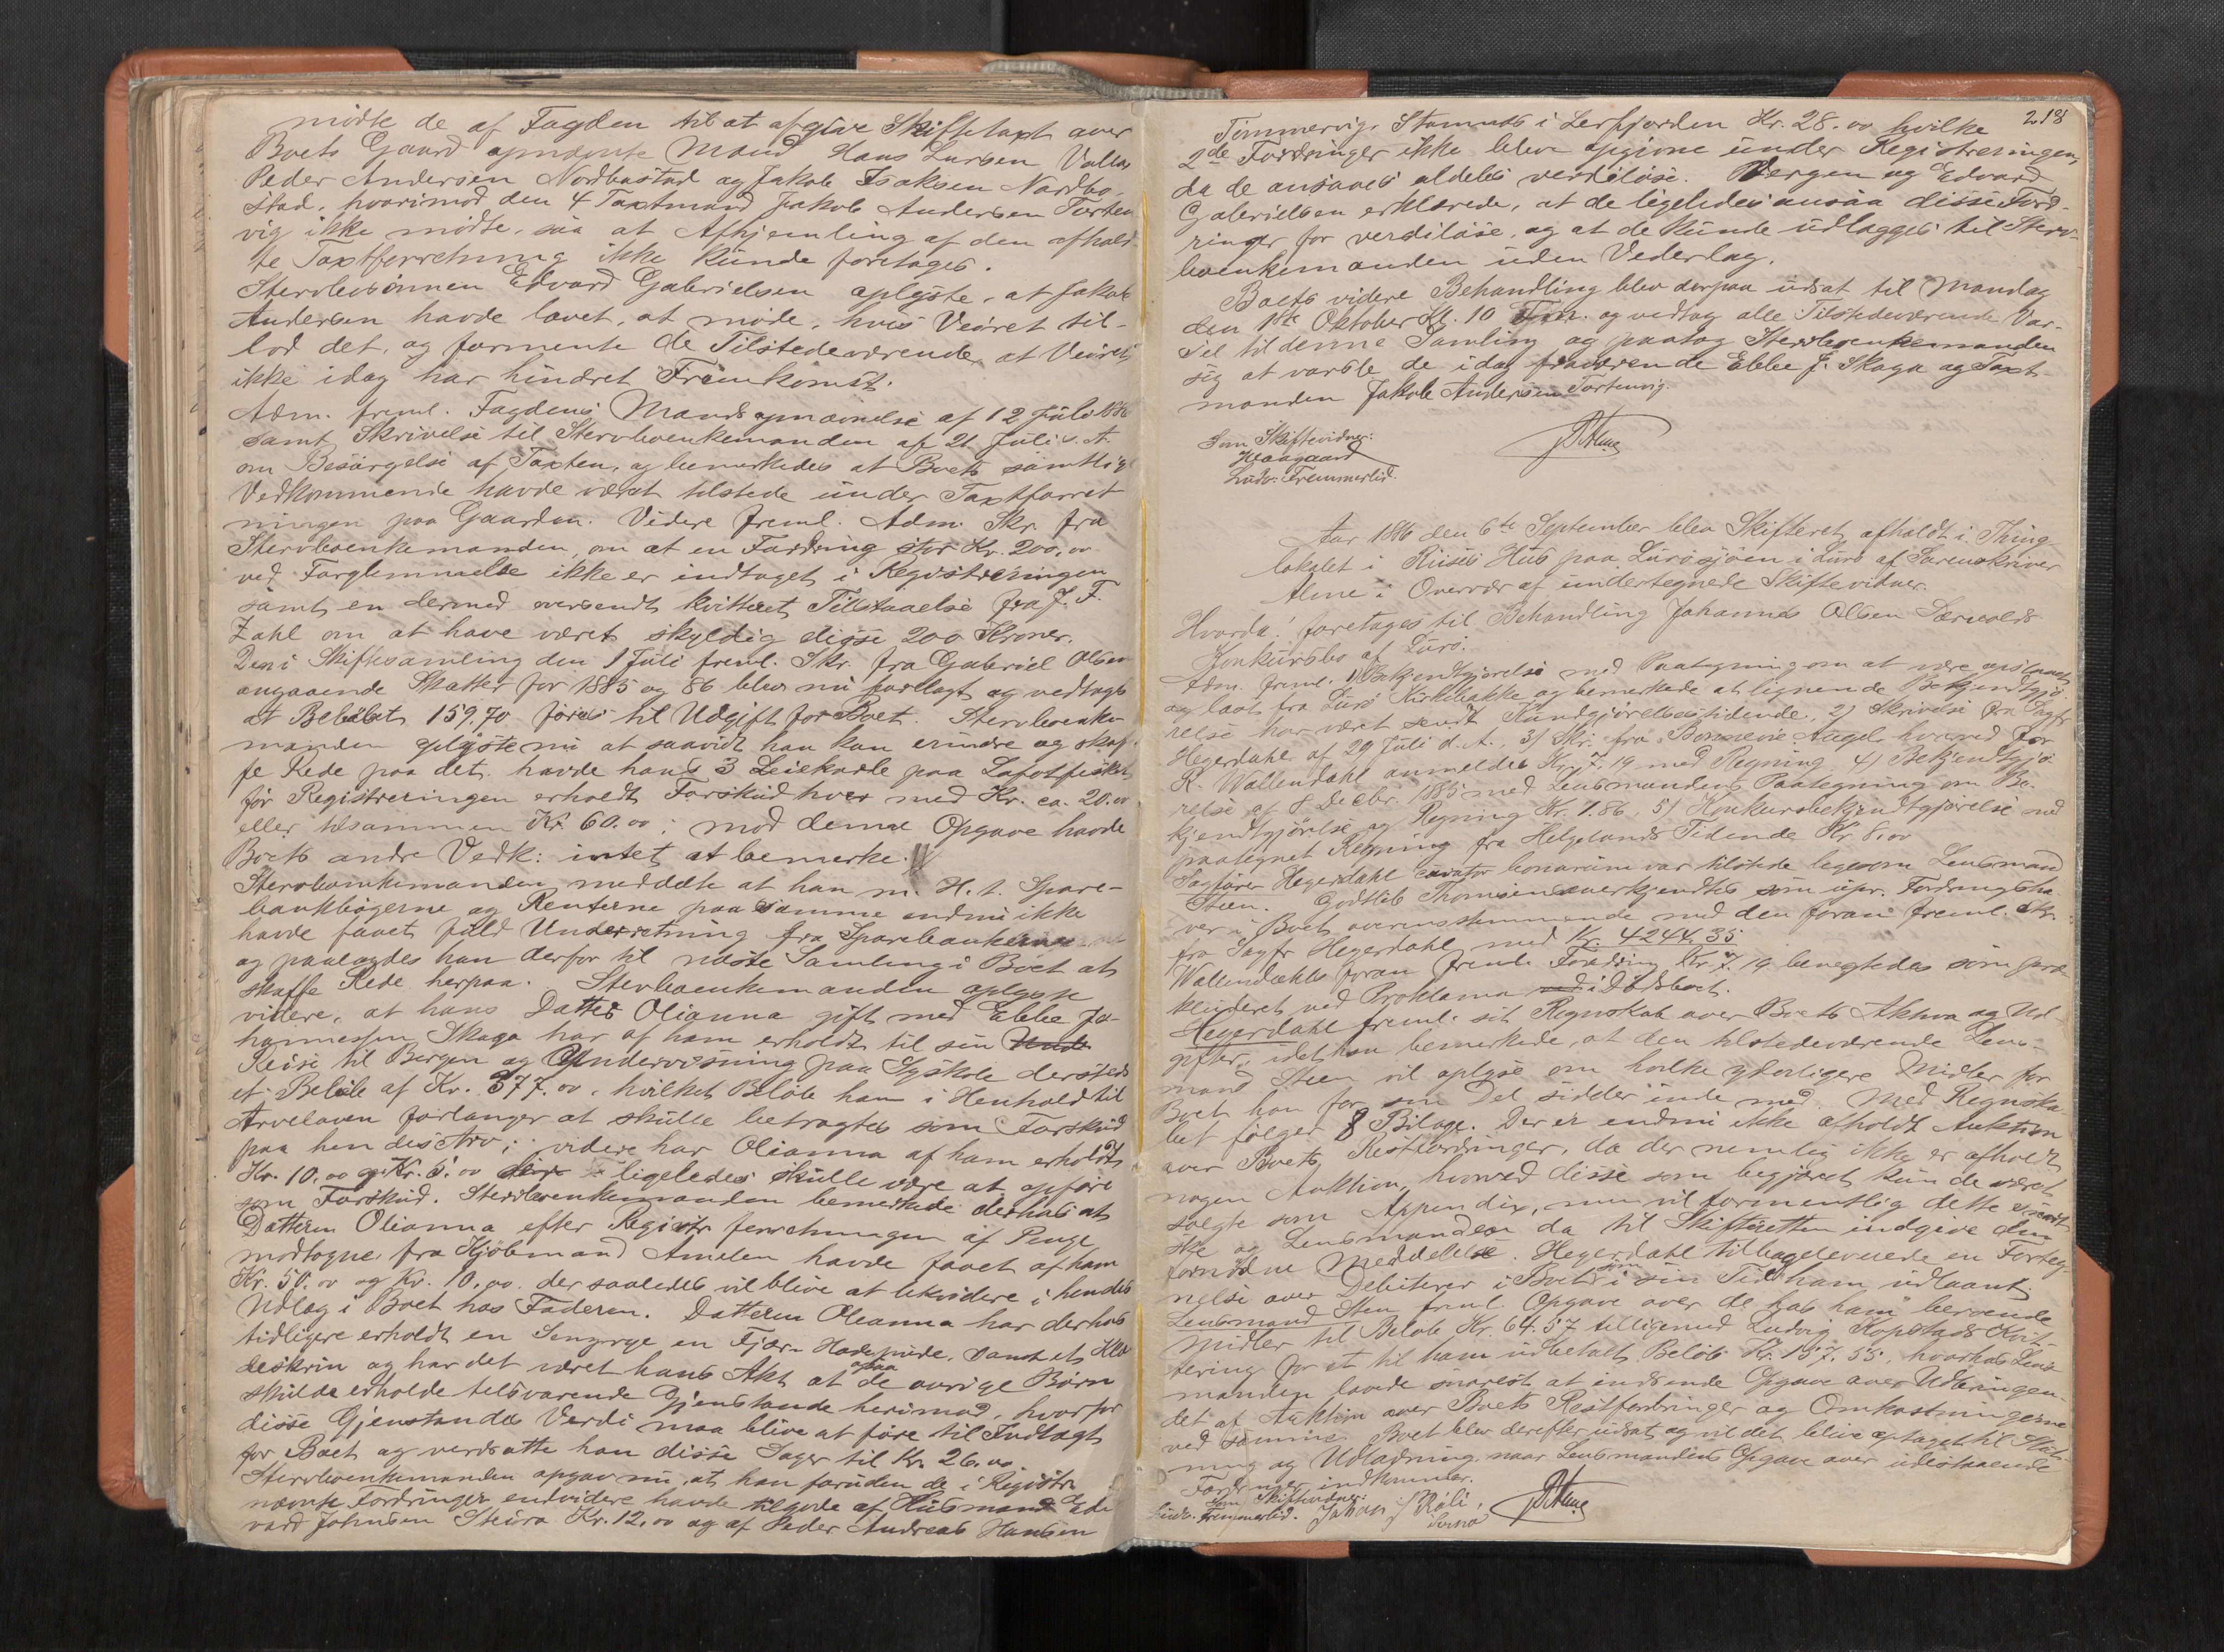 mødte de af Fogden til at afgive Skiftetaxt over
Boets Gaard opnævnte Mænd Hans Larsen Valla,
Peder Andersen Nordbostad og Jakob Isaksen Nordbo-
stad, hvorimod den 4 Taxtmand Jakob Andersen Torten
vig ikke mødte, saa at Afhjemling af den afhold-
te Taxtforretning ikke kunde foretages.
Stervbosønnen Edvard Gabrielsen oplyste, at Jakob
Andersen havde lovet, at møde, hvis Veiret til-
lod det, og formente de Tilstedeværende at Veiret
ikke idag har hindret Fremkomst.
Adm. freml. Fogdens Mandsopnævnelse af 12 Juli 1886
samt Skrivelse til Stervboenkemanden af 21 Juli s. A.
om Besørgelse af Taxten, og bemerkedes at Boets samtlige
Vedkommende havde været tilstede under Taxtforret
ningen paa Gaarden. Videre freml. Adm. Skr. fra
Stervboenkemanden, om at en Fordring stor Kr. 200,00
ved Forglemmelse ikke er indtaget i Registreringen
samt en dermed oversendt kvitteret Tilstaaelse fra J. F.
Zahl om at have været skyldig disse 200 Kroner.
Den i Skiftesamling den 1 Juli freml. Skr. fra Gabriel Olsen
angaaende Skatter for 1885 og 86 blev nu forelagt og vedtoges
at Beløbet 159,70 føres til Udgift for Boet. Stervboenke-
manden oplyste nu at saavidt han kan erindre og skaf-
fe Rede paa det, havde hans 3 Leiekarle paa Lofotfisket
før Registreringen erholdt Forskud hver med Kr. ca. 20.00
eller tilsammen Kr 60.00; mod denne Opgave havde
Boets andre Vedk: intet at bemerke.
Stervboenkemanden meddelte at han m. H. t. Spare-
bankbøgerne og Renterne paa samme endnu ikke
havde faaet fuld Underretning fra Sparebankerne
og paalagdes han derfor til næste Samling i Boet at
skaffe Rede herpaa. Stervboenkemanden oplyste
videre, at hans Datter Olianna gift med Ebbe Jo-
hannessen Skaga har af ham erholdt til sin
Reise til Bergen og Underviisning paa Syskole dersteds
et Beløb af Kr. 377.00, hvilket Beløb han i Henhold til
Arveloven forlanger at skulle betragtes som Forskud
paa hendes Arv; videre har Olianna af ham erholdt
Kr. 10.00 og Kr. 8.00 ligeledes skulle være at opføre
som Forskud. Stervboenkemanden bemerkede derhos at
Datteren Olianna efter Registr. forretningen af Penge
modtagne fra Kjøbmand Amelen havde faaet af ham
Kr. 50.00 og Kr. 10,00 der saaledes vil blive at likvidere i hendes
Udlæg i Boet hos Faderen. Datteren Olianna har derhos
tidligere erholdt en Sengryge en Fjær- Hodepude, samt et Klæ
deskrin og har det været hans Akt at ogsaa de øvrige Børn
skulde erholde tilsvarende Gjenstande herimod, hvorfor
disse Gjenstandes Verdi maa blive at føre til Indtægt
for Boet og verdsatte han disse Sager til Kr. 26.00
Stervboenkemanden opgav nu, at han foruden de i Registr.
nævnte Fordringer endvidere havde tilgode af Husmand Ed-
vard Johnsen Kr. 12,00 og af Peder Andreas Hansen
218
Tømmervig, Stamnes i Lerfjorden Kr. 28.00 hvilke
2de Fordringer ikke blev opgivne under Registreringen,
da de ansaaes aldeles verdiløse. Vergen og Edvard
Gabrielsen erklærede, at de ligeledes ansaa disse Ford-
ringer for verdiløse, og at de kunde udlægges til Sterv-
boenkemanden uden Vederlag.
Boets videre Behandling blev derpaa udsat til Mandag
den 1ste Oktober Kl. 10 Fm. og vedtog alle Tilstedeværende Var-
sel til denne Samling og paatog Stervboenkemanden
sig at varsle de idag fraværende Ebbe J. Skaga og Taxt-
manden Jakob Andersen Tortenvig.
Som Skiftevidner:
Haagaard
Ludv. Fremmerlid.
Aar 1886 den 6te September blev Skifteret afholdt i Thing
lokalet i Riises Hus paa Lurøsjøen i Lurø af Sorenskriver
Alme i Overvær af undertegnede Skiftevidner.
Hvorda! foretages til Behandling Johannes Olsen Særvolds
Konkursbo af Lurø.
Adm. freml. 1) Bekjendtgjørelse med Paategning om at være opslaaet
og læst fra Lurø Kirkebakke og bemerkede at lignende Bekjendtgjø-
relse har været sendt Kundgjørelsestidende, 2) Skrivelse fra Sagfr
Hegerdahl af 29 Juli d. A., 3) Skr. fra Bonnevie Angel hvorved for
R. Wallendahl anmeldes Kr. 7.19 med Regning 4) Bekjendtgjø-
relse af 8 Decbr. 1885 med Lensmandens Paategning om Be-
kjendtgjørelse og Regning Kr. 1.86, 5) Konkursbekjendtgjørelse med
paategnet Regning fra Helgelands Tidende Kr. 8,00
Sagfører Hegerdahl curator bonorum var tilstede ligesom Lensmand
Steen. Godtlieb Thomsen anerkjendtes som upr. Fordringsha-
ver i Boet overensstemmende med den foran freml. Skr.
fra Sagfr Hegerdahl med Kr. 4244.35
Wallendahls foran freml. Fordring Kr. 7.19 benegtedes som præ-
kluderet ved Proklama i Dødsboet.
Hegerdahl freml. sit Regnskab over Boets Aktiva og Ud-
gifter, idet han bemerkede, at den tilstedeværende Lens-
mand Steen vil oplyse om hvilke yderligere Midler for
Boet han for sin Del sidder inde med. Med Regnska-
bet følger 8 Bilage. Der er endnu ikke afholdt Auktion
over Boets Restfordringer, da der nemlig ikke er afholdt
nogen Auktion, hvorved disse som begjæret kunde været
solgte som Appendix, men vil formentlig dette snart
ske og Lensmanden da til Skifteretten indgive den
fornødne Meddelelse. Hegerdahl tilbageleverede en Forteg-
nelse over Debitorer i Boet som i sin Tid ham udlaant
Lensmand Steen freml. Opgave over de hos ham beroende
Midler til Beløb Kr. 64.57 tilligemed Ludvig Kopstads Kvit-
tering for et til ham udbetalt Beløb Kr. 157.55, hvorhos Lens-
manden lovede snarest at indsende Opgave over Udbringen-
det af Auktion over Boets Restfordringer og Omkostningerne
ved samme. Boet blev derefter udsat og vil det blive optaget til Slut-
ning og Udlodning naar Lensmandens Opgave over udestaaende
Fordringer indkommer.
Som Skiftevidner:
Ludv. Fremmerlid. Johan J